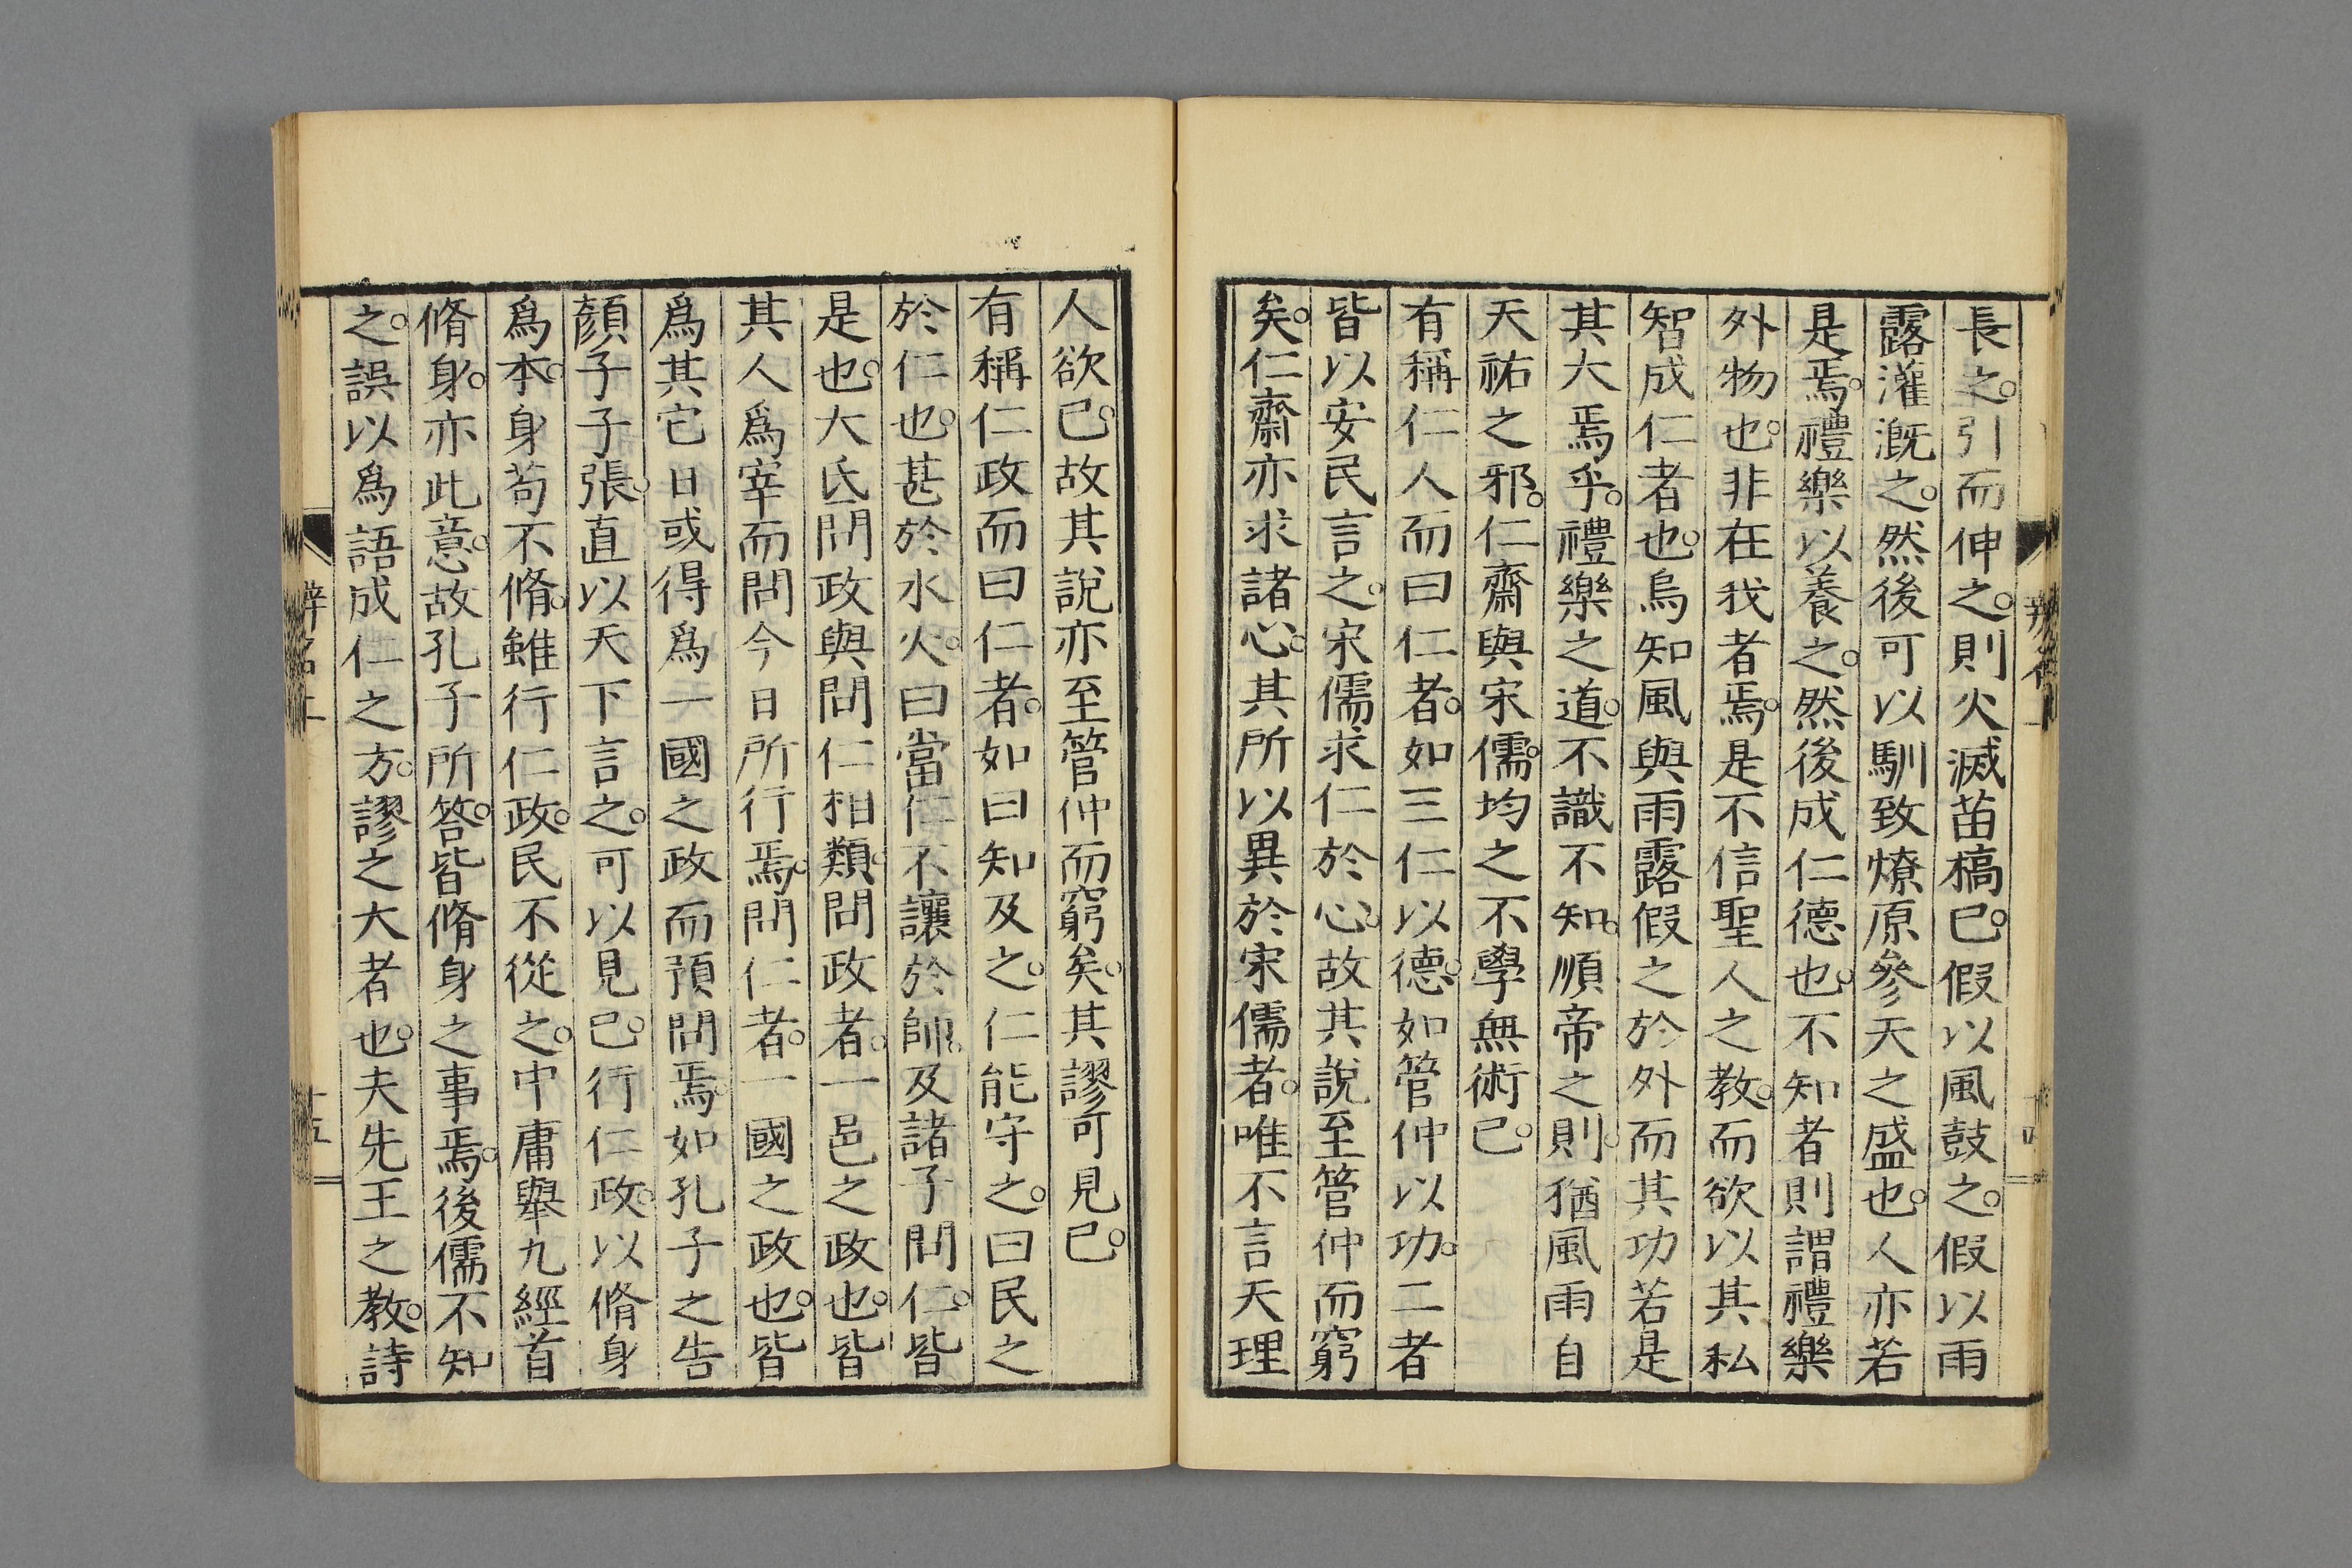 長之。引而伸之。則火滅苗槁已。假以風鼓之。假以雨
露灌漑之。然後可以馴致燎原參天之盛也。人亦若
是焉。禮樂以養之。然後成仁德也。不知者則謂禮樂
外物也。非在我者焉。是不信聖人之教。而欲以其私
智成仁者也。烏知風與雨露假之於外而其功若是
其大焉乎。禮樂之道。不識不知。順帝之則。猶風雨自
天祐之邪。仁齋與宋儒。均之不學無術已。
有稱仁人而曰仁者。如三仁以德。如管仲以功。二者
皆以安民言之。宋儒求仁於心。故其說至管仲而窮
矣。仁齋亦求諸心。其所以異於宋儒者。唯不言天理
人欲已。故其說亦至管仲而窮矣。其謬可見已。
有稱仁政而曰仁者。如曰知及之。仁能守之。曰民之
於仁也。甚於水火。曰當仁不讓於師。及諸子問仁。皆
是也。大氐問政與問仁相類。問政者。一邑之政也。皆
其人爲宰而問今日所行焉。問仁者。一國之政也。皆
爲其它日或得爲一國之政而預問焉。如孔子之告
顏子子張。直以天下言之。可以見已。行仁政。以脩身
爲本。身苟不脩。雖行仁政。民不從之。中庸舉九經首
脩身。亦此意。故孔子所答。皆脩身之事焉。後儒不知
之。誤以爲語成仁之方。謬之大者也。夫先王之教。詩
辨名上
十五